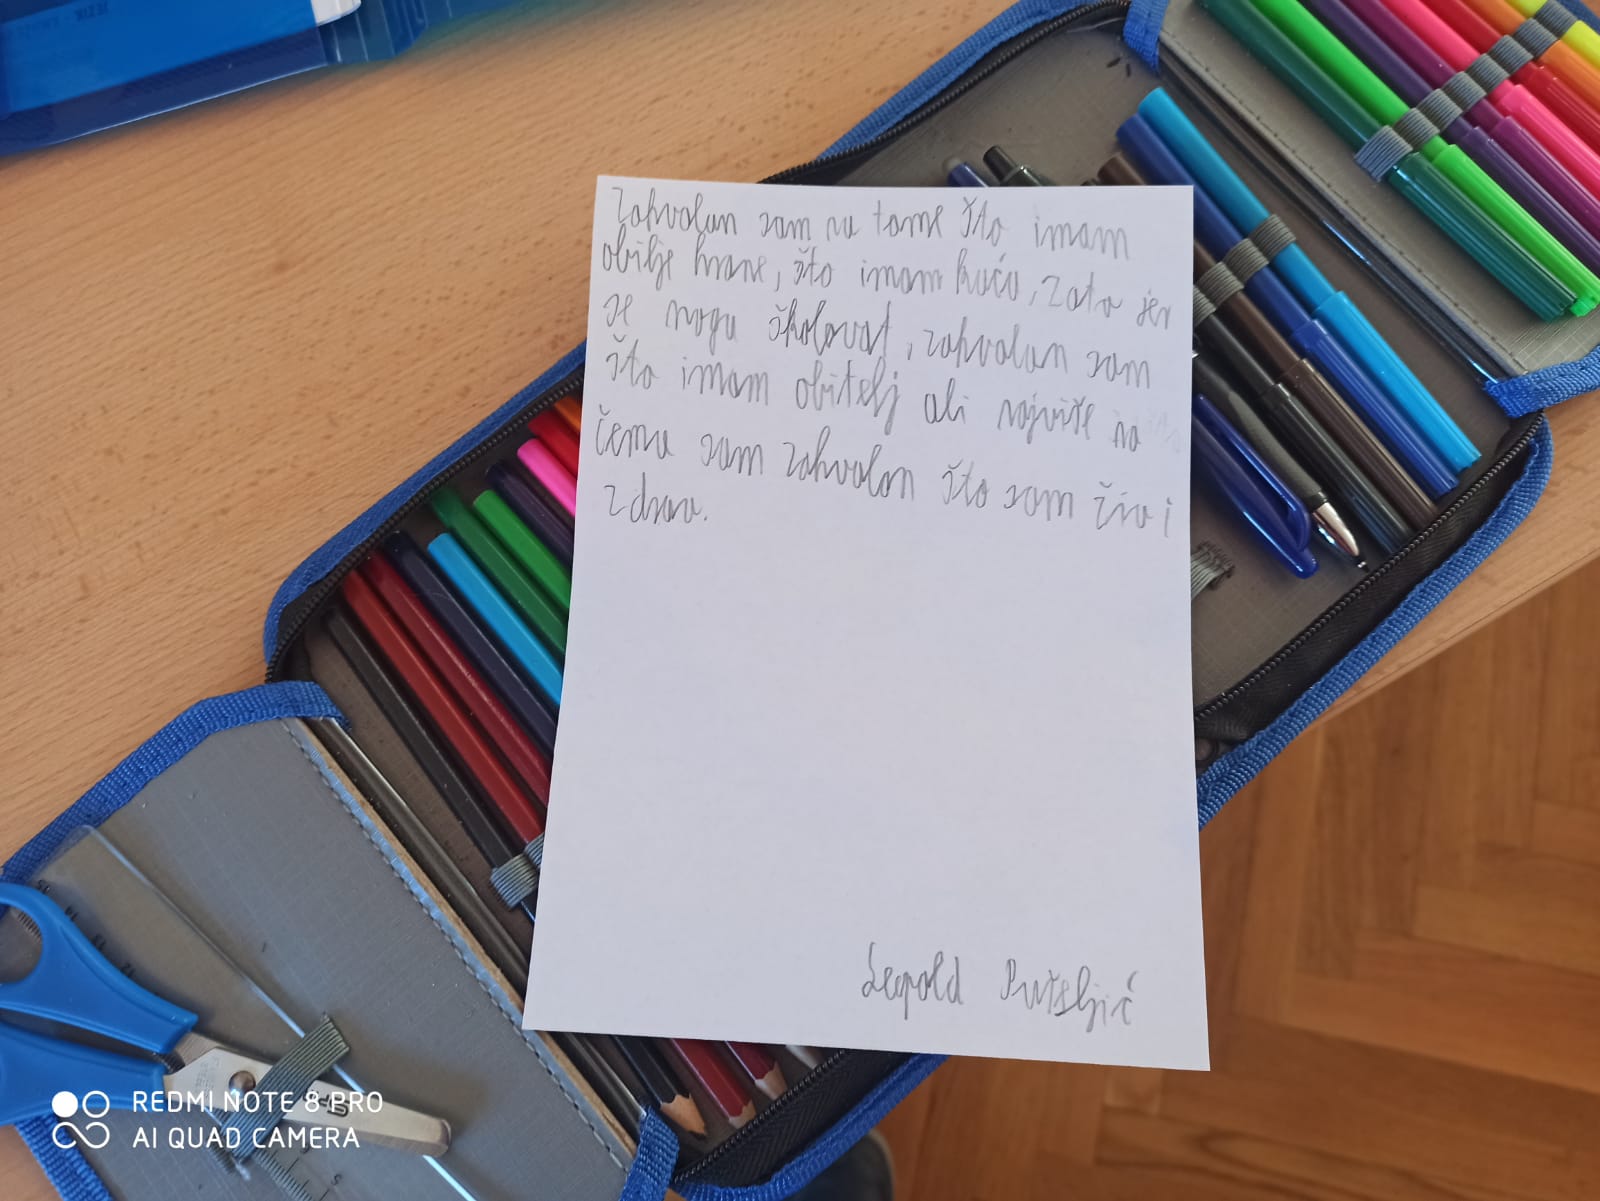 Zahvalan sam na tome što imam
obilje hrane, što imam kuću, zato jer
se mogu školovat, zahvalan sam
što imam obitelj ali najviše na
čemu sam zahvalan što sam živ i
zdrav.
Leopold
REDMI NOTE 8 PRO
AI QUAD CAMERA